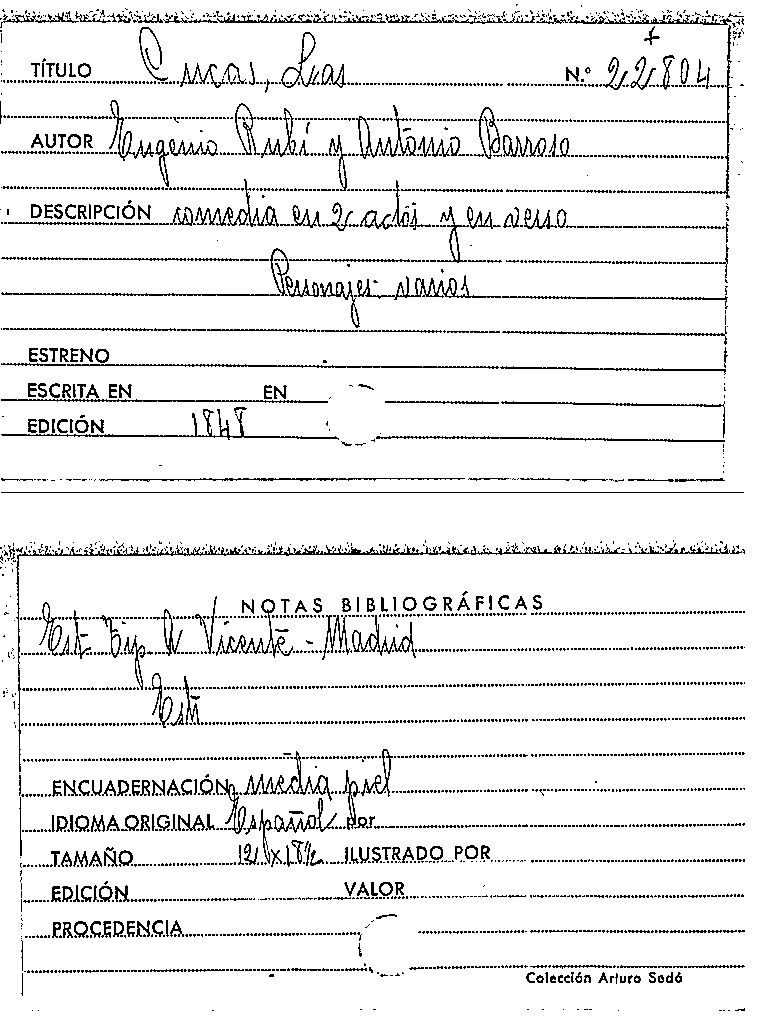 +
TÍTULO Cucas, Las N.º 22804
AUTOR Eugenio Rubí y Antonio Barroso
DESCRIPCIÓN comedia en 2 actos y en verso
Personajes: varios
ESTRENO
ESCRITA EN EN
EDICIÓN 1848
NOTAS BIBLIOGRÁFICAS
Est Tip Vicente - Madrid
ENCUADERNACIÓN media piel
IDIOMA ORIGINAL Español por
TAMAÑO 12 x 18½ ILUSTRADO POR
EDICIÓN VALOR
PROCEDENCIA
Colección Arturo Sedó